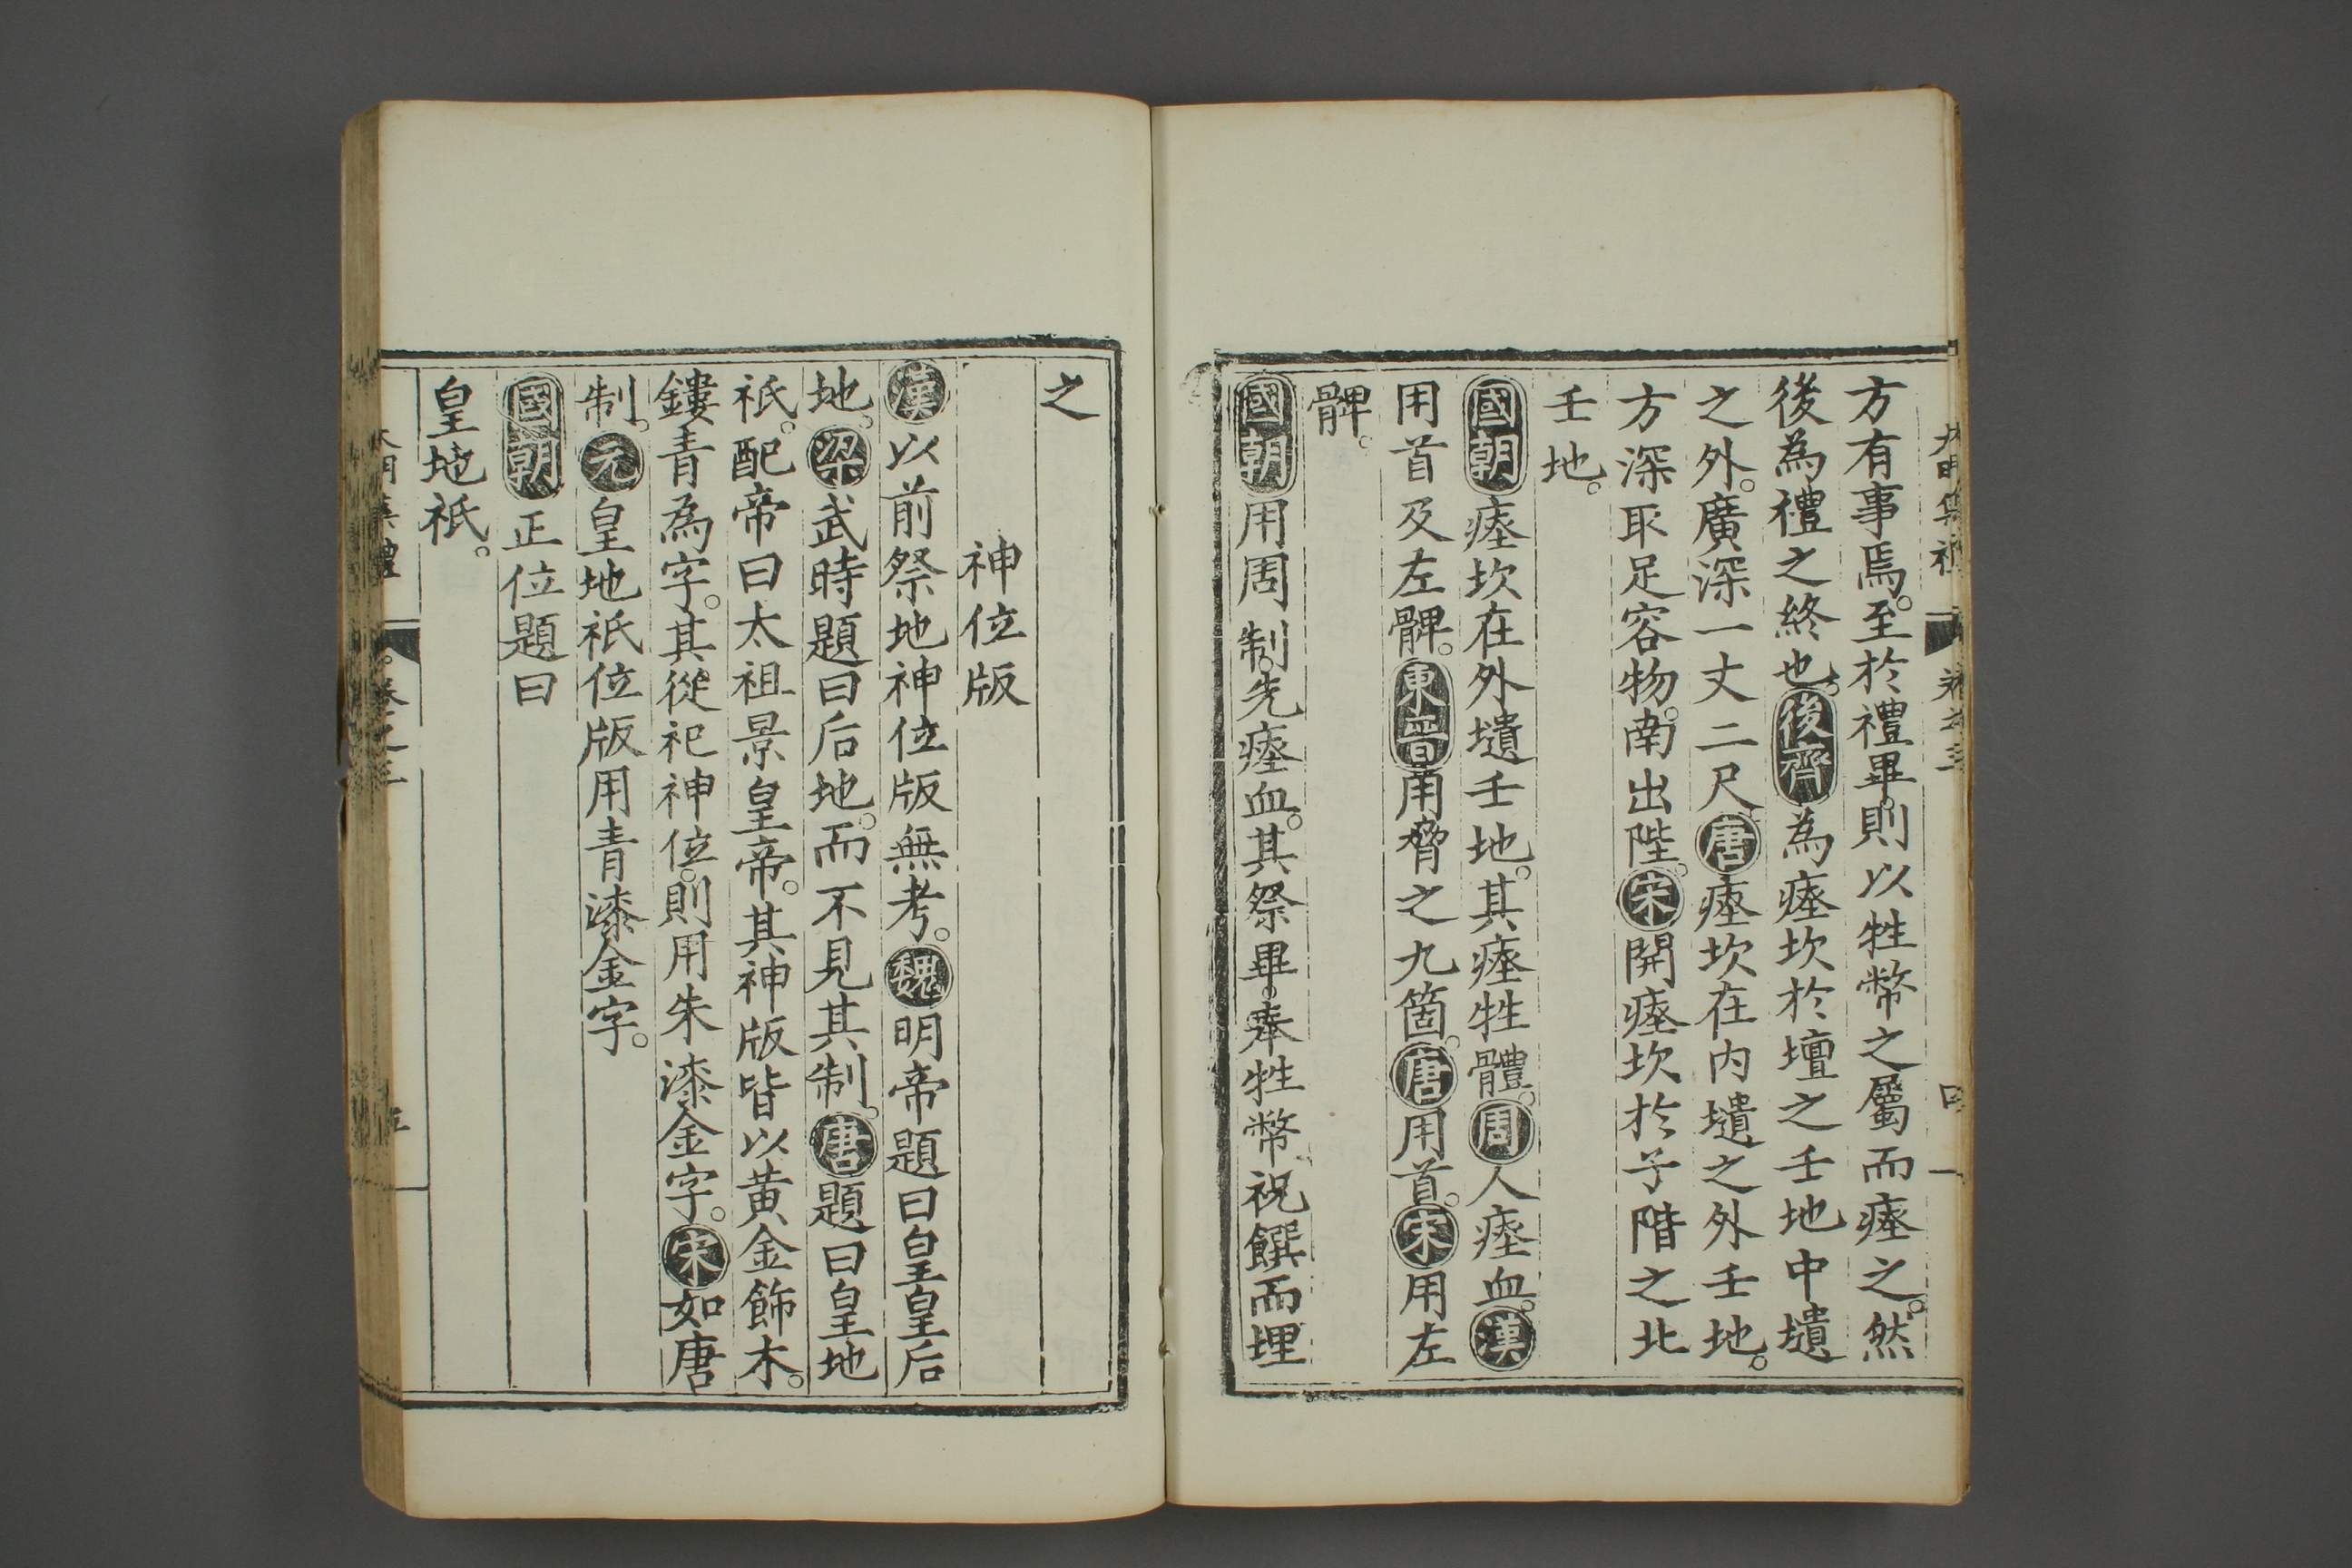 大明集禮 卷之三 四
方有事焉。至於禮畢。則以牲幣之屬而瘞之。然
後為禮之終也。後齊為瘞坎於壇之壬地中壝
之外。廣深一丈二尺。唐瘞坎在內壝之外壬地。
方深取足容物。南出陛。宋開瘞坎於子階之北
壬地。
國朝瘞坎在外壝壬地。其瘞牲體。周人瘞血。漢
用首及左髀。東晉用脅之九箇。唐用首。宋用左
髀。
國朝用周制。先瘞血。其祭畢。奉牲幣祝饌而埋
之
神位版
漢以前祭地神位版無考。魏明帝題曰皇皇后
地。梁武時題曰后地。而不見其制。唐題曰皇地
祇。配帝曰太祖景皇帝。其神版皆以黃金飾木。
鏤青為字。其從祀神位。則用朱漆金字。宋如唐
制。元皇地祇位版用青漆金字。
國朝正位題曰
皇地祇。
大明集禮 卷之三